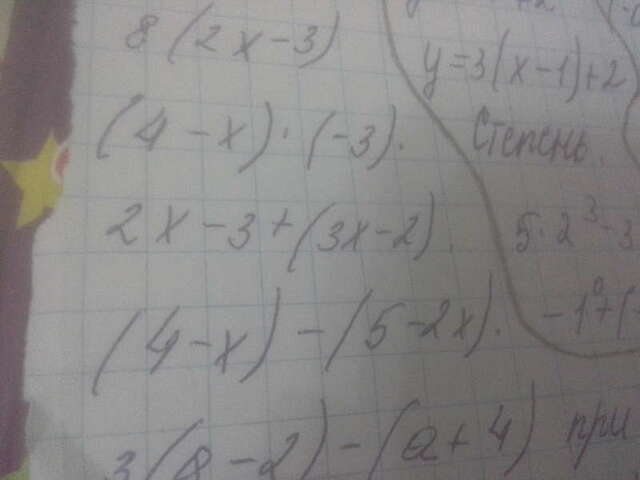 8(2x-3)
(4-x)·(-3).
2x-3+(3x-2)
(4-x)-(5-2x).
3(a-2)-(a+4) при
y=3(x-1)+2
Степень.
5·2³-3
-1⁰+(